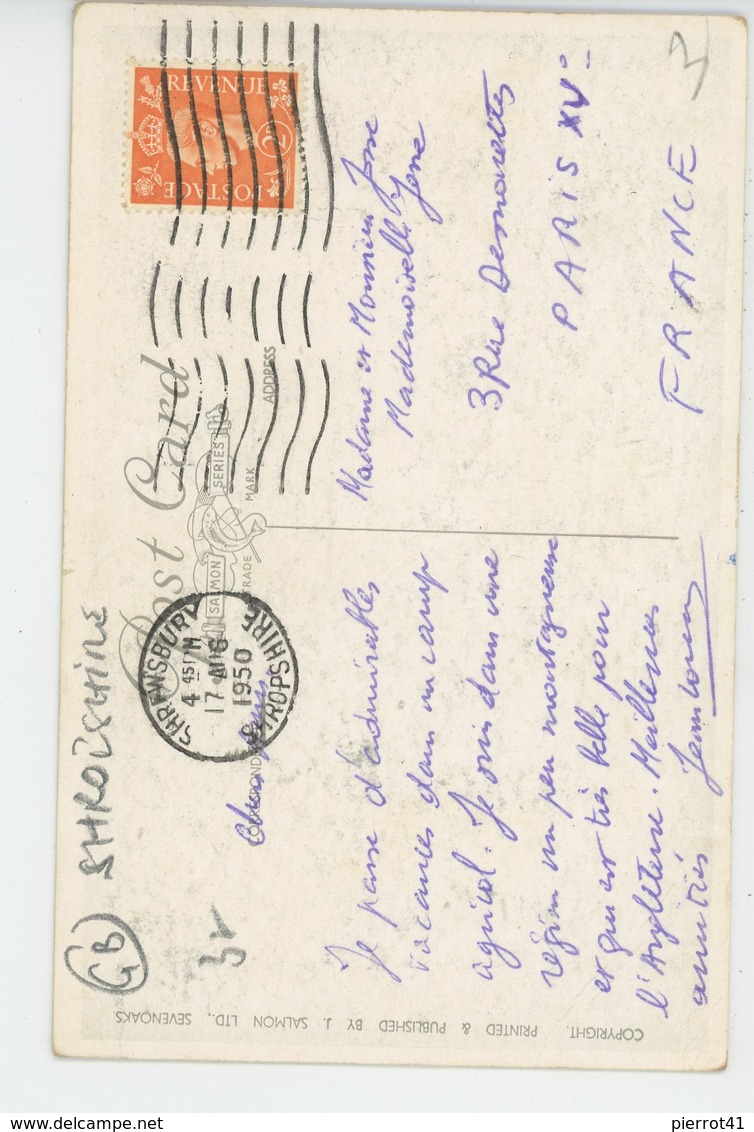 GB SHROPSHIRE
3r
3
Post Card
SALMON SERIES
TRADE MARK
ADDRESS
REVENUE
POSTAGE
2D
SHREWSBURY
4 45 PM
17 AUG
1950
SHROPSHIRE
Je passe d'admirables
vacances dans un camp
agricol. Je suis dans une
région un peu montagneuse
et qui est très belle pour
l'Angleterre. Meilleures
amitiés
Madame et Monsieur
Mademoiselle
3 Rue Desnouettes
PARIS XVº
FRANCE
COPYRIGHT. PRINTED & PUBLISHED BY J. SALMON LTD., SEVENOAKS
pierrot41
delcampe.net